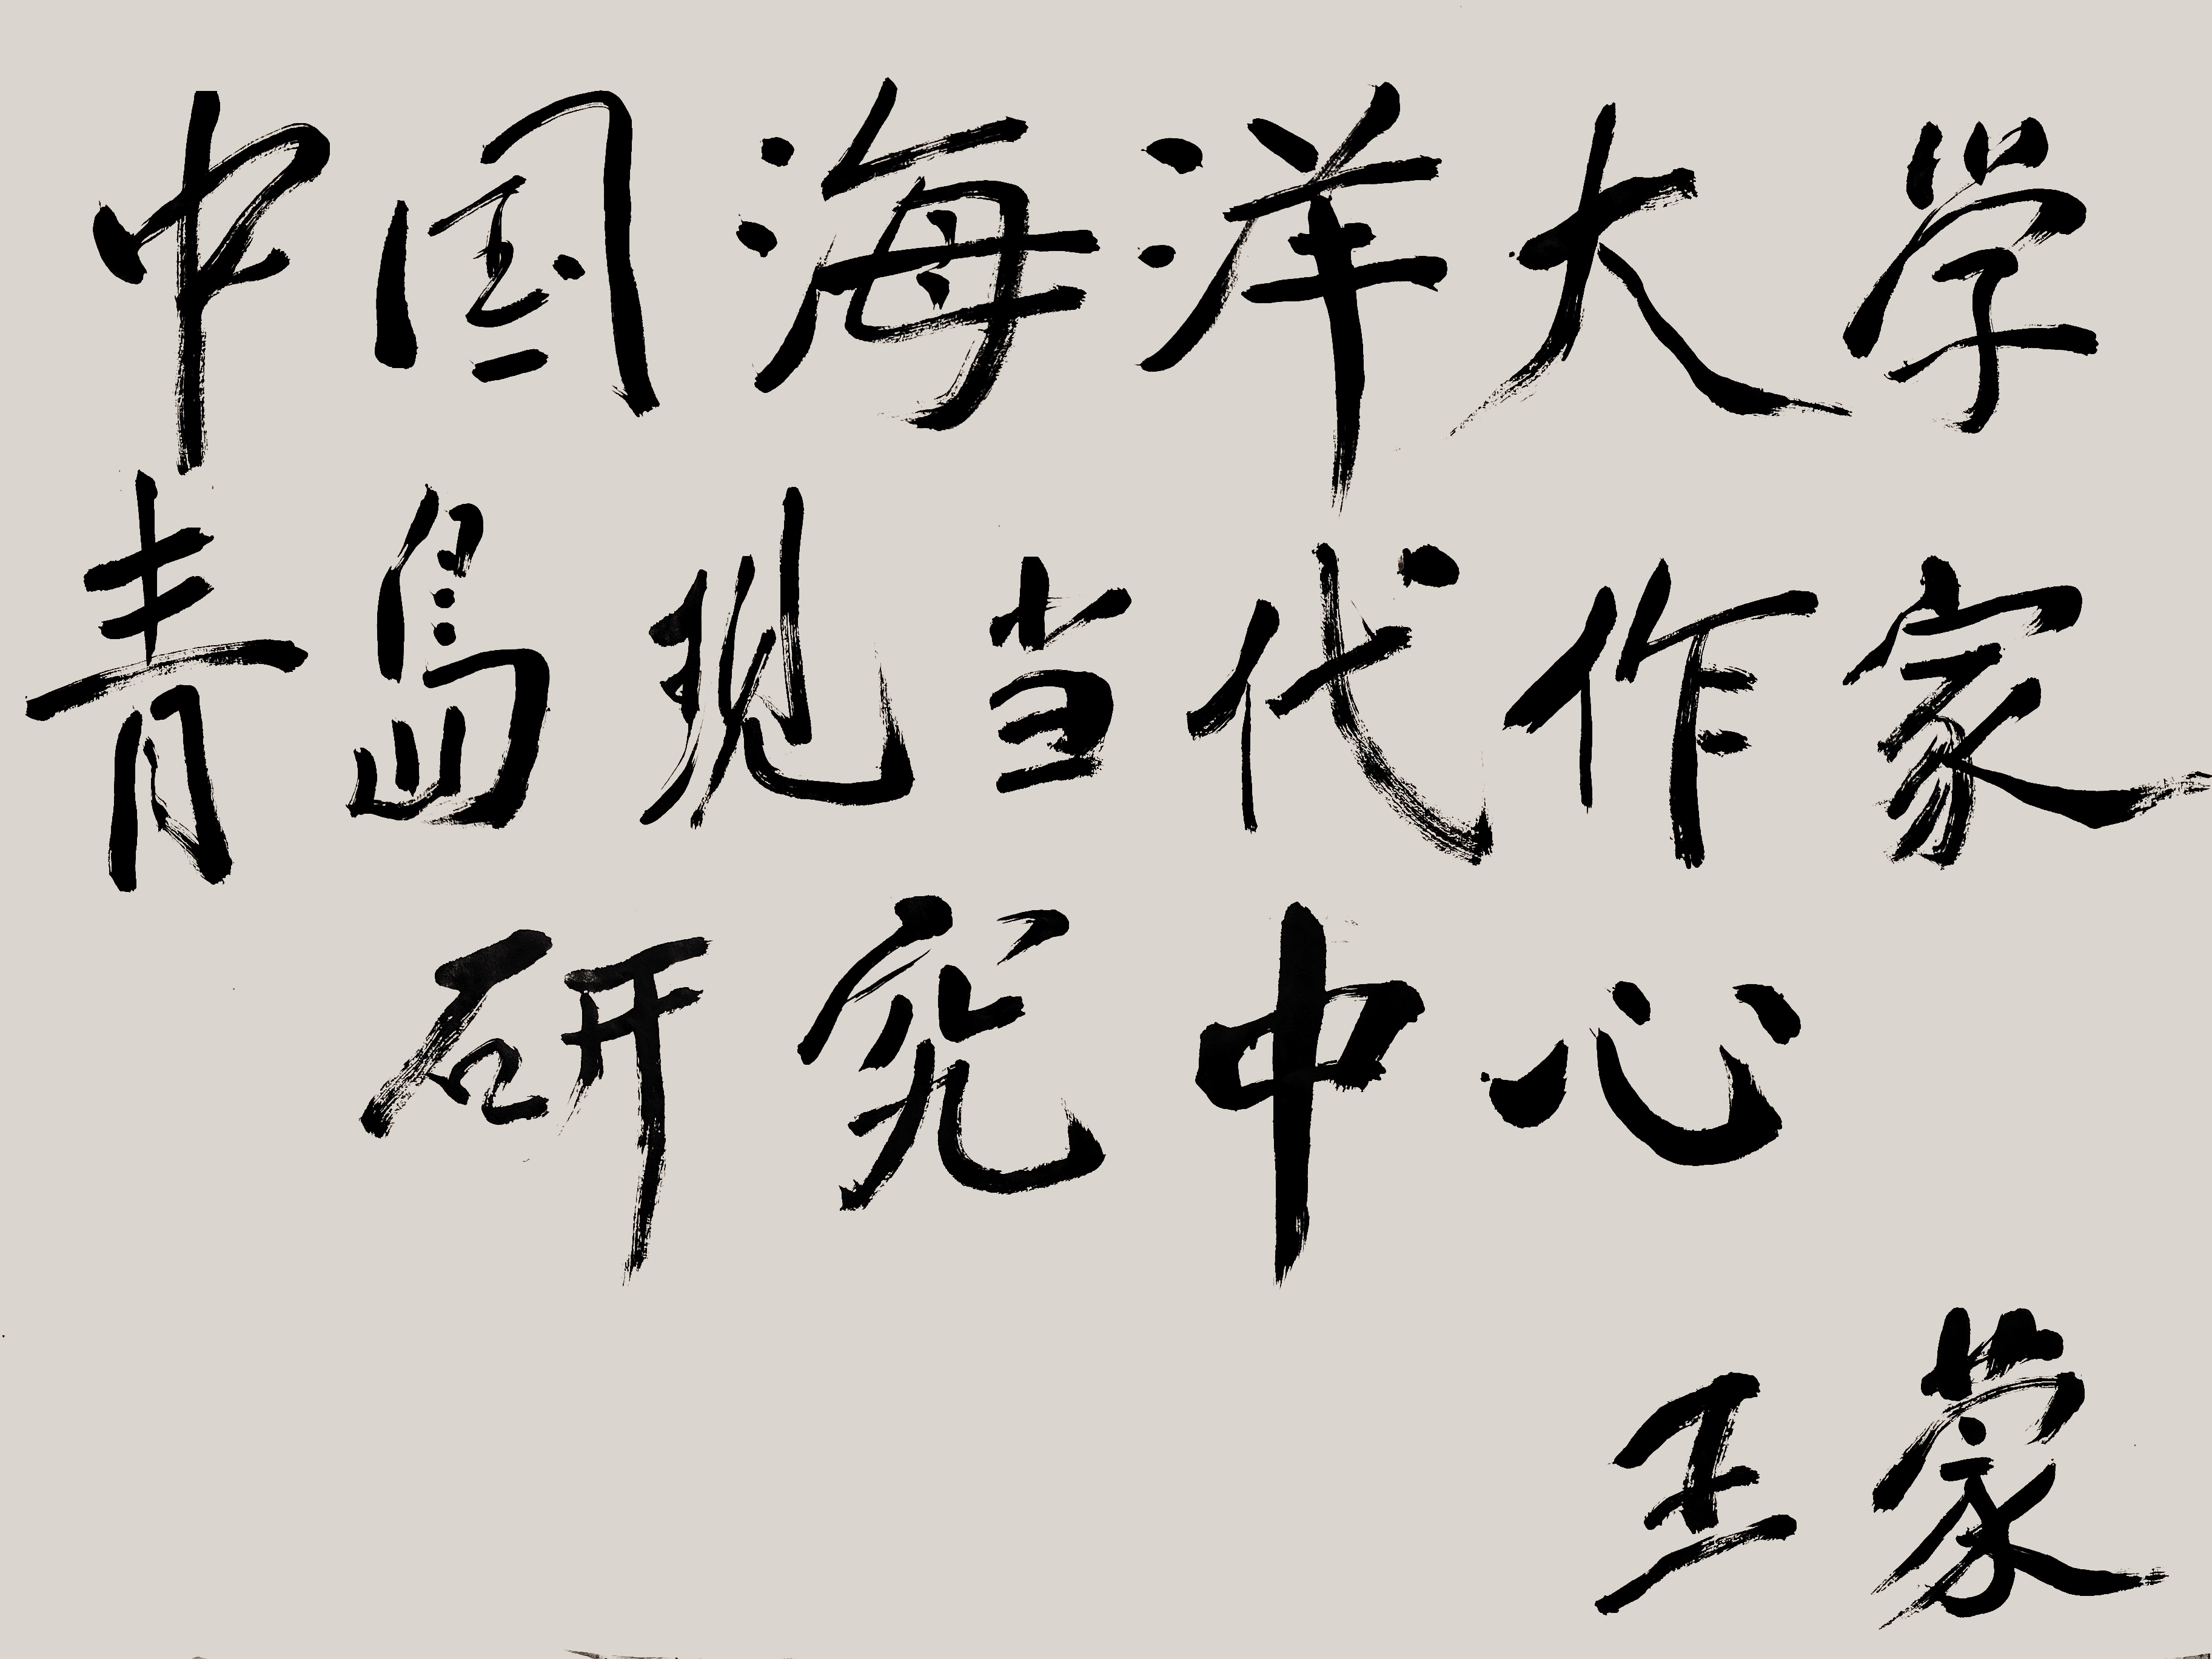 中国海洋大学
青岛现当代作家
研究中心
王蒙